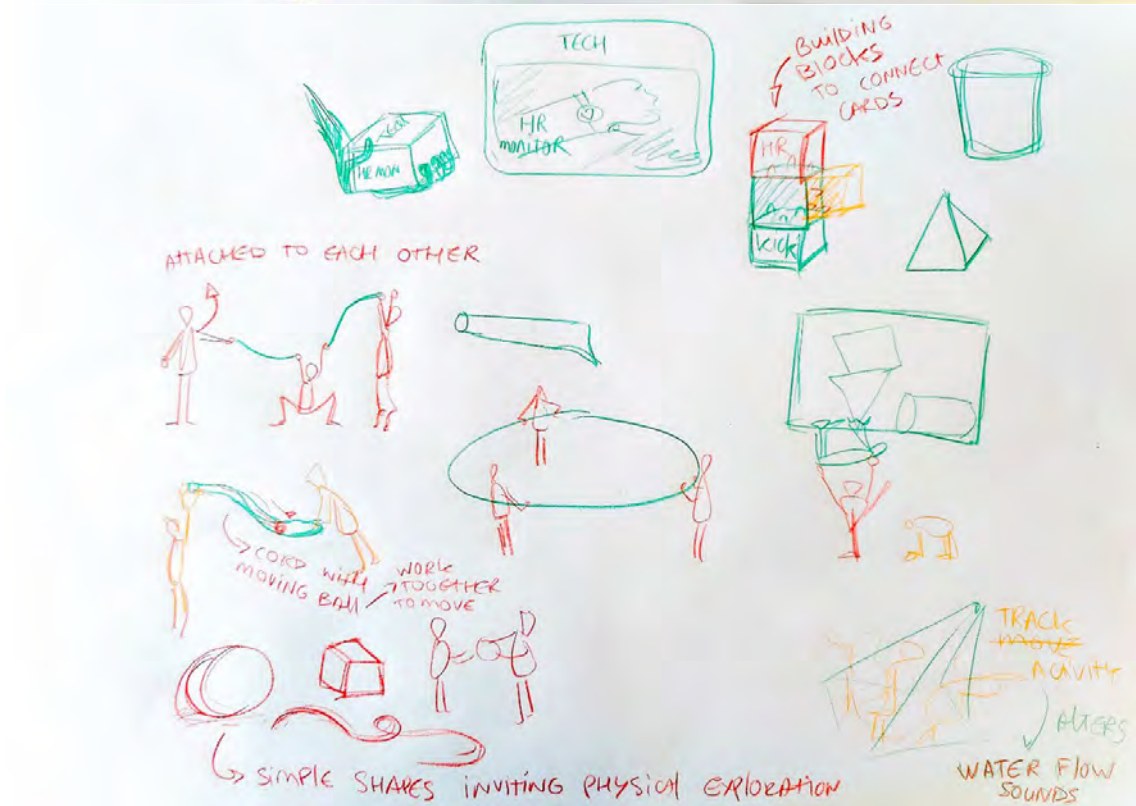 TECH
HR
MONITOR
TECH
HR MON
BUILDING
BLOCKS
TO CONNECT
CARDS
HR
KICK
ATTACHED TO EACH OTHER
CORD WITH
MOVING BALL
WORK
TOGETHER
TO MOVE
SIMPLE SHAPES INVITING PHYSICAL EXPLORATION
TRACK
MOVE
ACTIVITY
ALTERS
WATER FLOW
SOUNDS